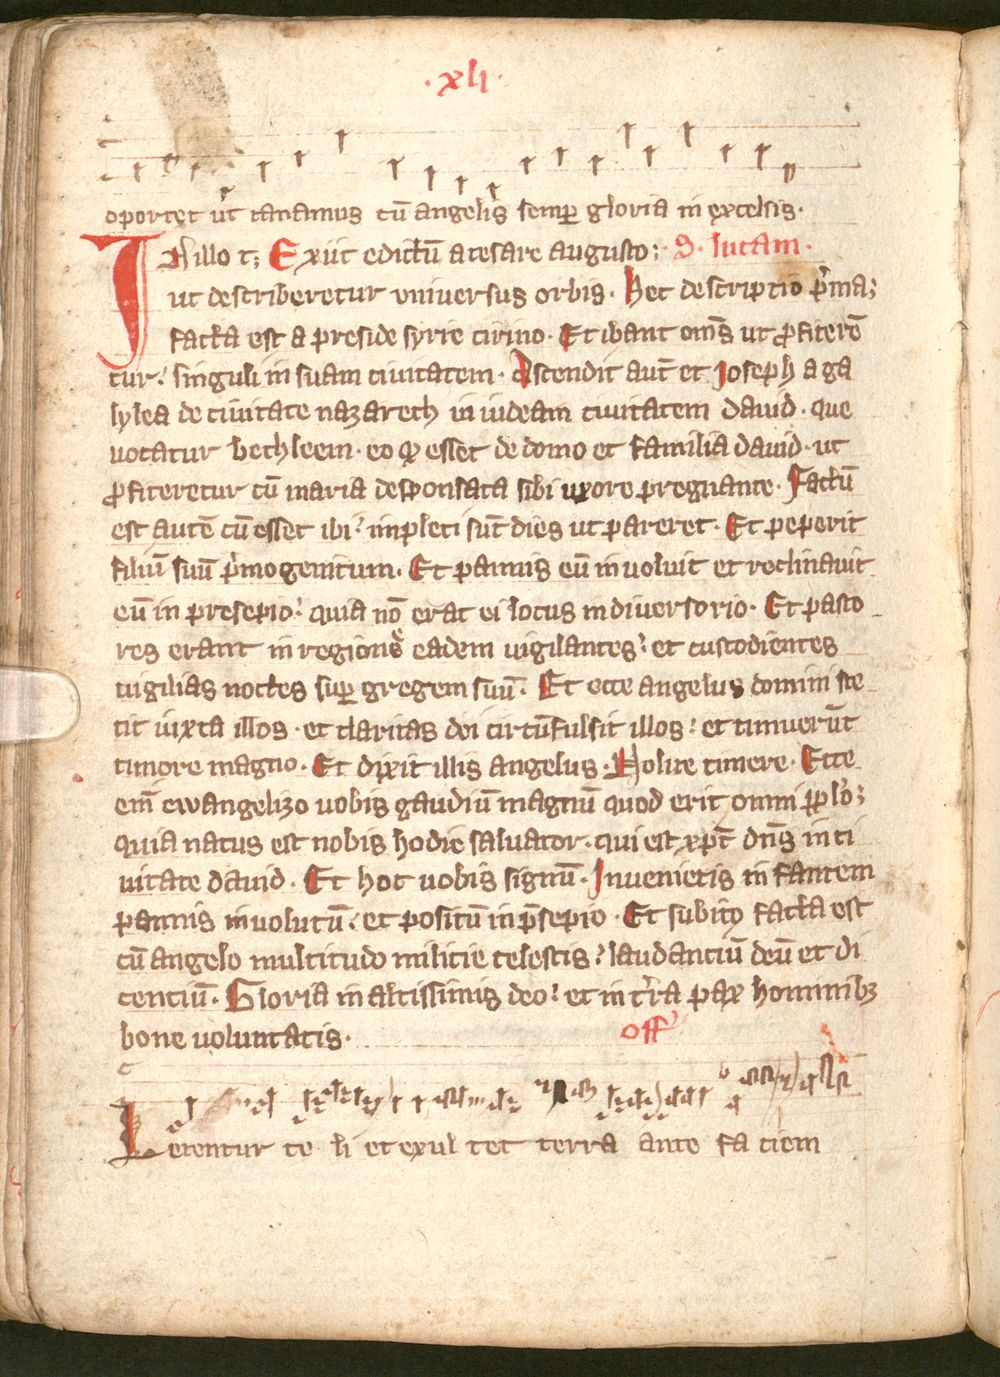 ·xli·
oportet ut canamus cū angelis semꝑ gloria in excelsis·
IN illo t; Exiit edictū a cesare augusto; S. lucam·
ut describeretur vniversus orbis· hec descriptio p̓ma;
facta est a preside syrie cirino· Et ibant om̄s ut ꝓfiterē
tur: singuli in suam ciuitatem· Ascendit aut̄ et ioseph a ga
lylea de ciuitate nazareth in iudeam ciuitatem dauid· que
uocatur bethleem· eo ꝙ esset de domo et familia dauid· ut
ꝓfiteretur cū maria desponsata sibi uxore pregnante· factū
est autē cū esset ibi: inpleti sūt dies ut pareret· Et peperit
filiū suū p̓mogenitum· Et pannis eū inuoluit et reclinauit
eū in presepio: quia nō erat ei locus in diuersorio· Et pasto
res erant in regione eadem uigilantes: et custodientes
uigilias noctes suꝑ gregem suū· Et ecce angelus domini ste
tit iuxta illos· et claritas dei circūfulsit illos: et timuerūt
timore magno· Et dixit illis angelus· Nolite timere· Ecce
em̄ ewangelizo uobis gaudiū magnū quod erit omni pp̄lo;
quia natus est nobis hodie saluator· qui est xp̄c dn̄s in ci
uitate dauid· Et hoc uobis signū· Inuenietis in fantem
pannis inuolutū: et positū in p̄sepio· Et subito facta est
cū angelo multitudo milicie celestis: laudanciū deū et di
cenciū· Gloria in altissimis deo: et in t̓ra pax hominibꝫ
bone uoluntatis· off̓
Letentur ce li et exul tet terra ante fa ciem